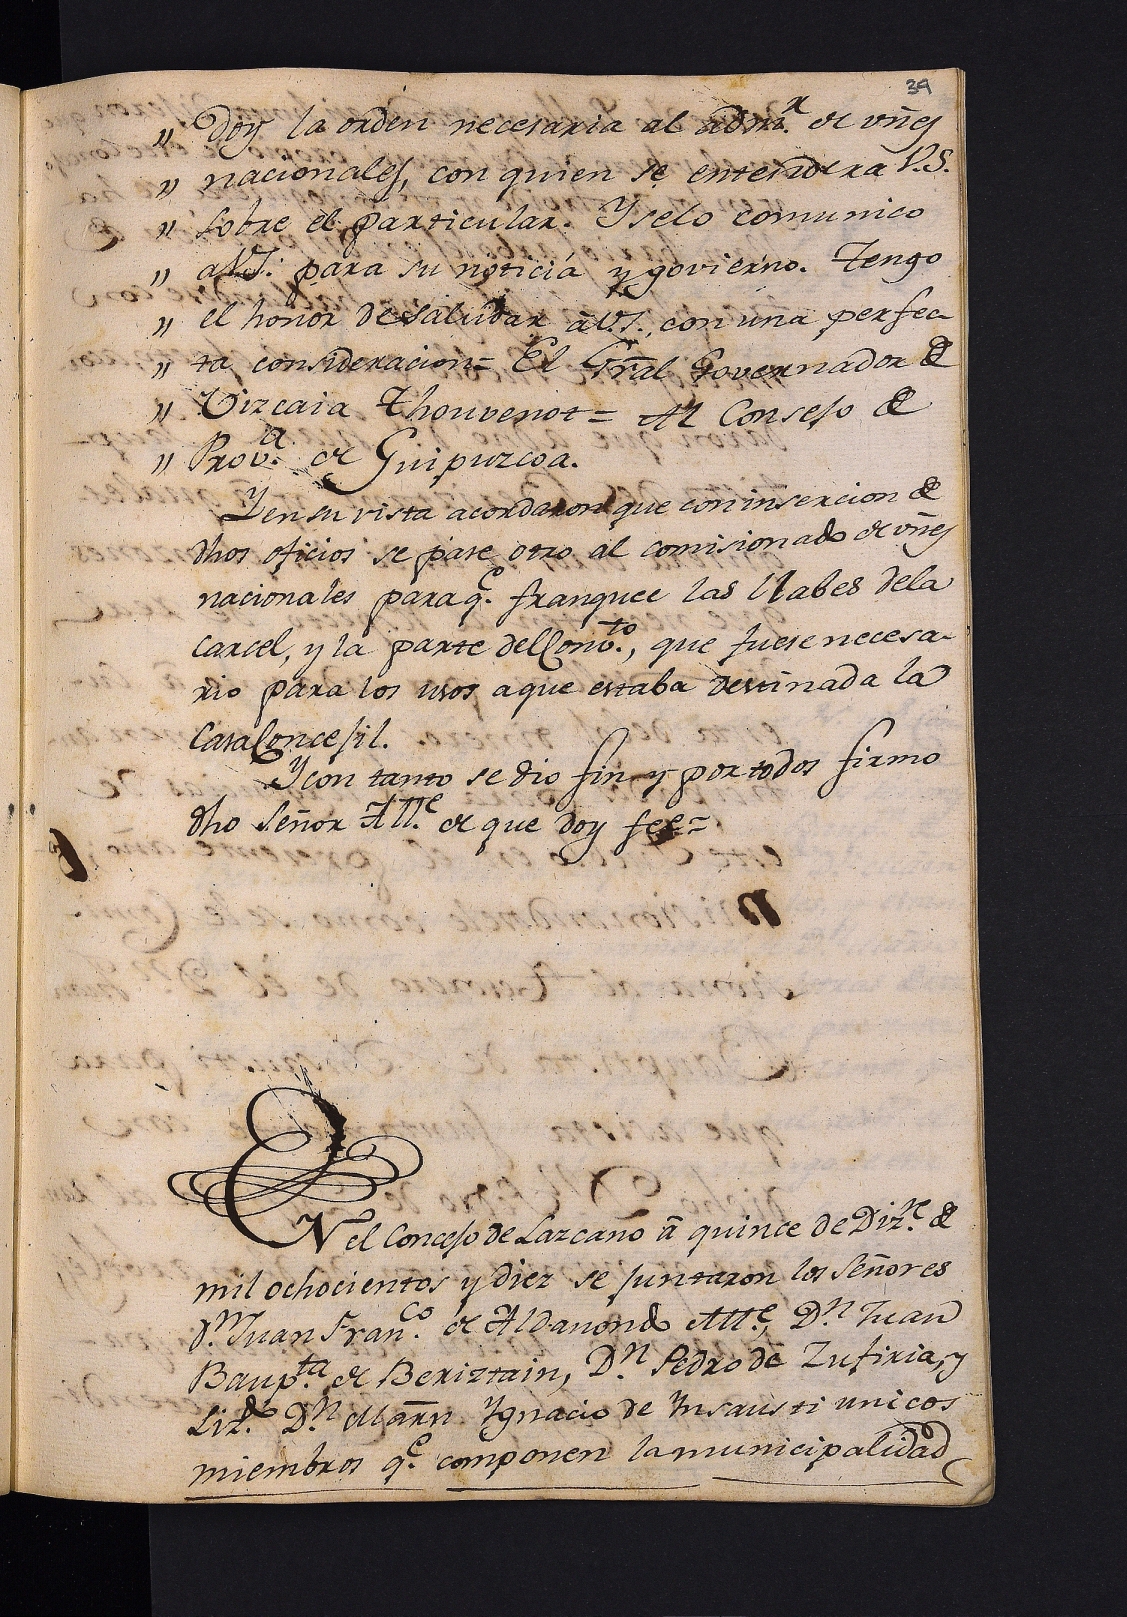 39
" Doy la orden necesaria al admr. de vñes
" nacionales, con quien se entenderá V.S.
" sobre el particular. Y selo comunico
" a V.S. para su noticia y govierno. Tengo
" el honor de saludar à V.S., con una perfec-
" ta consideracion = El Gral Governador de
" Vizcaia Thouvenot = Al Consejo de
" Prova. de Guipuzcoa.
Y en su vista acordaron que con insercion de
dhos oficios se pase otro al comisionado de vñes
nacionales para qe. franquee las llabes dela
carcel, y la parte del Convto., que fuese necesa-
rio para los usos a que estaba destinada la
Casa Concejil.
Y con tanto se dio fin y por todos firmo
dho Señor Alle. de que doy fee =
EN el Concejo de Lazcano à quince de Dizre. de
mil ochocientos y diez se juntaron los Señores
Dn. Juan Franco. de Aldanondo Alle., Dn. Juan
Baupta. de Beriztain, Dn. Pedro de Zufiria, y
Lizdo. Dn. Marn. Ygnacio de Insausti unicos
miembros qe. componen la municipalidad